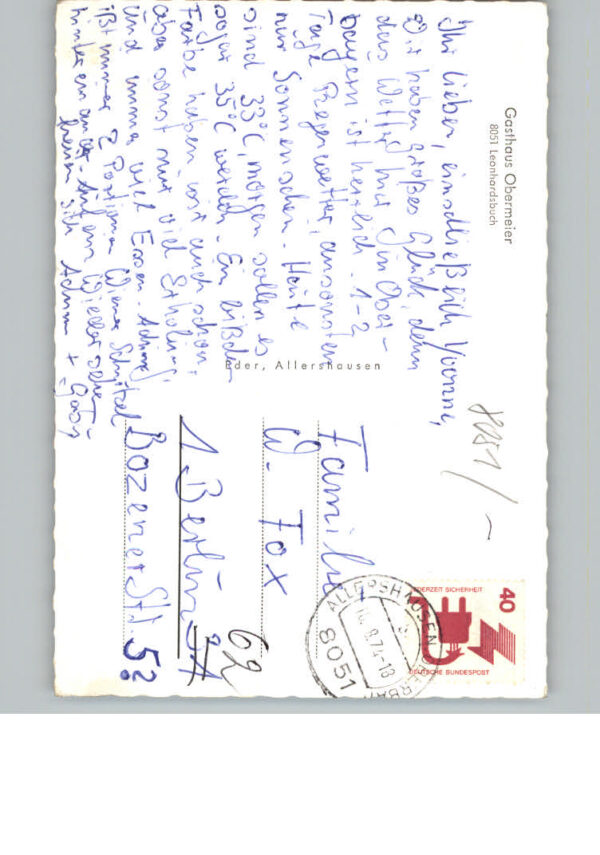 Gasthaus Obermeier
8051 Leonhardsbuch
Ihr Lieben, einschließlich Yvonne,
Wir haben großes Glück, denn
das Wetter hier in Ober-
bayern ist herrlich. 1-2
Tage Regenwetter, ansonsten
nur Sonnenschein. Heute
sind 33°C, morgen sollen es
sogar 35°C werden. Ein bißchen
Farbe haben wir auch schon,
aber sonst nur viel Erholung,
und immer viel Essen.
ißt immer 2 Portionen Wiener Schnitzel
hintereinander. Auf ein Wiedersehen
freuen sich
Eder, Allershausen
8051/-
Familie
W. Fox
1 Berlin
62
Bozener Str. 5
40
JEDERZEIT SICHERHEIT
DEUTSCHE BUNDESPOST
ALLERSHAUSEN
8051